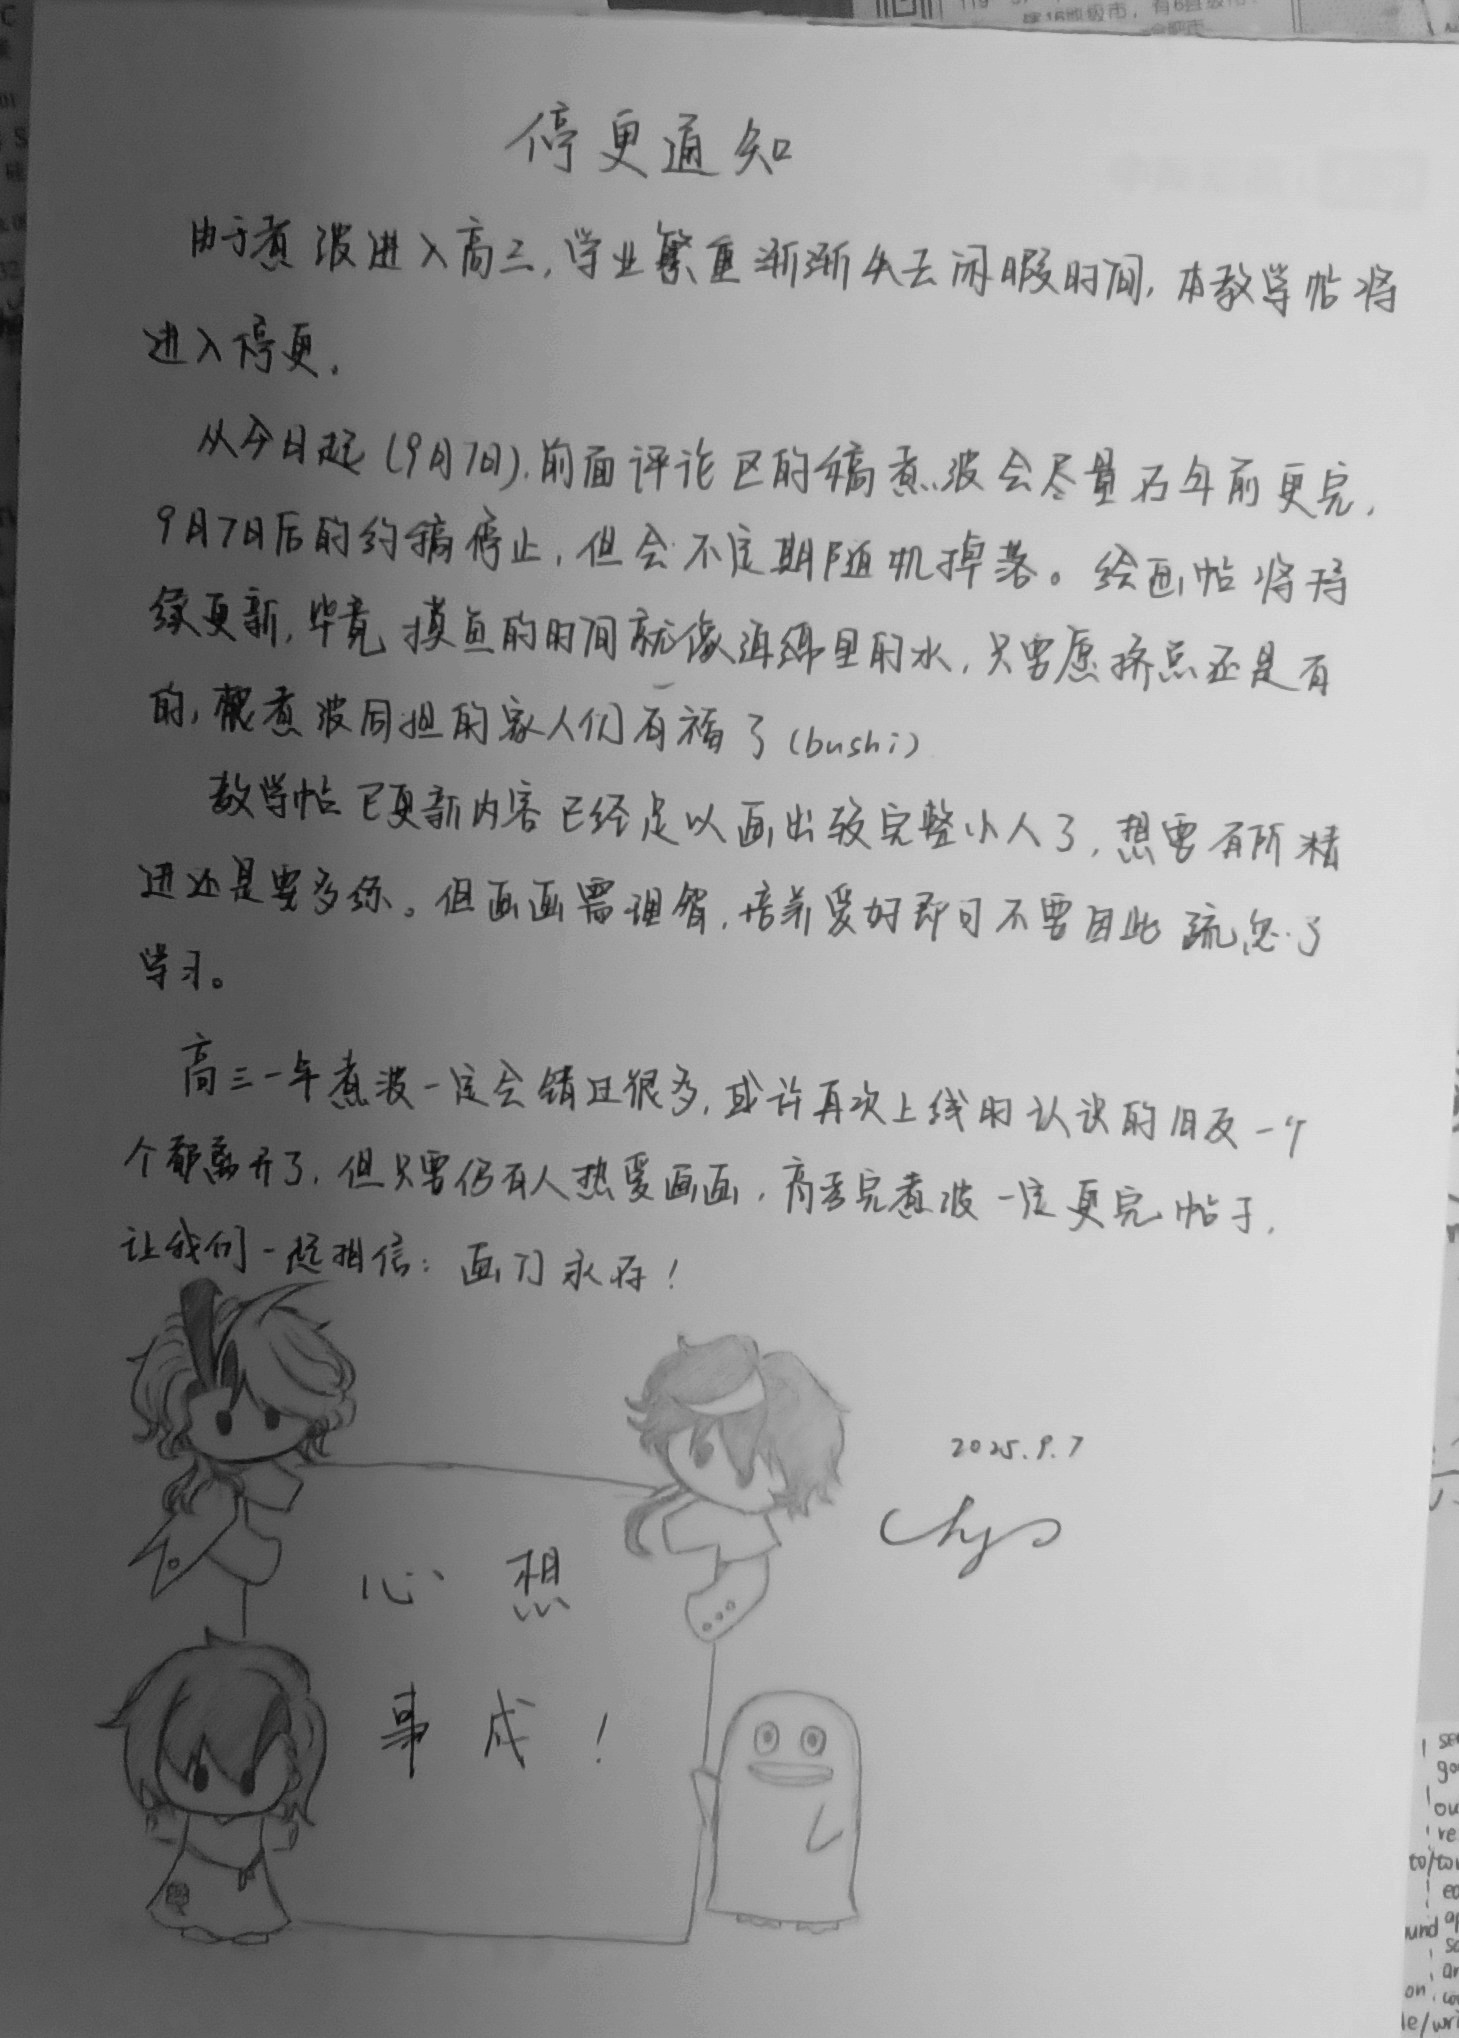 停更通知
由于煮波进入高三,学业繁重渐渐失去闲暇时间,本教学帖将
进入停更。
从今日起(9月7日),前面评论区的稿煮波会尽量在年前更完,
9月7日后的约稿停止,但会不定期随机掉落。绘画帖将持
续更新,毕竟摸鱼的时间就像海绵里的水,只要愿挤点还是有
的,和煮波同担的家人们有福了(bushi)
教学帖已更新内容已经足以画出较完整小人了,想要有所精
进还是要多练。但画画需理智,培养爱好即可不要因此疏忽了
学习。
高三一年煮波一定会错过很多,或许再次上线时认识的旧友一个
个都离开了,但只要仍有人热爱画画,高考完煮波一定更完帖子,
让我们一起相信:画门永存!
2025.9.7
心想
事成!